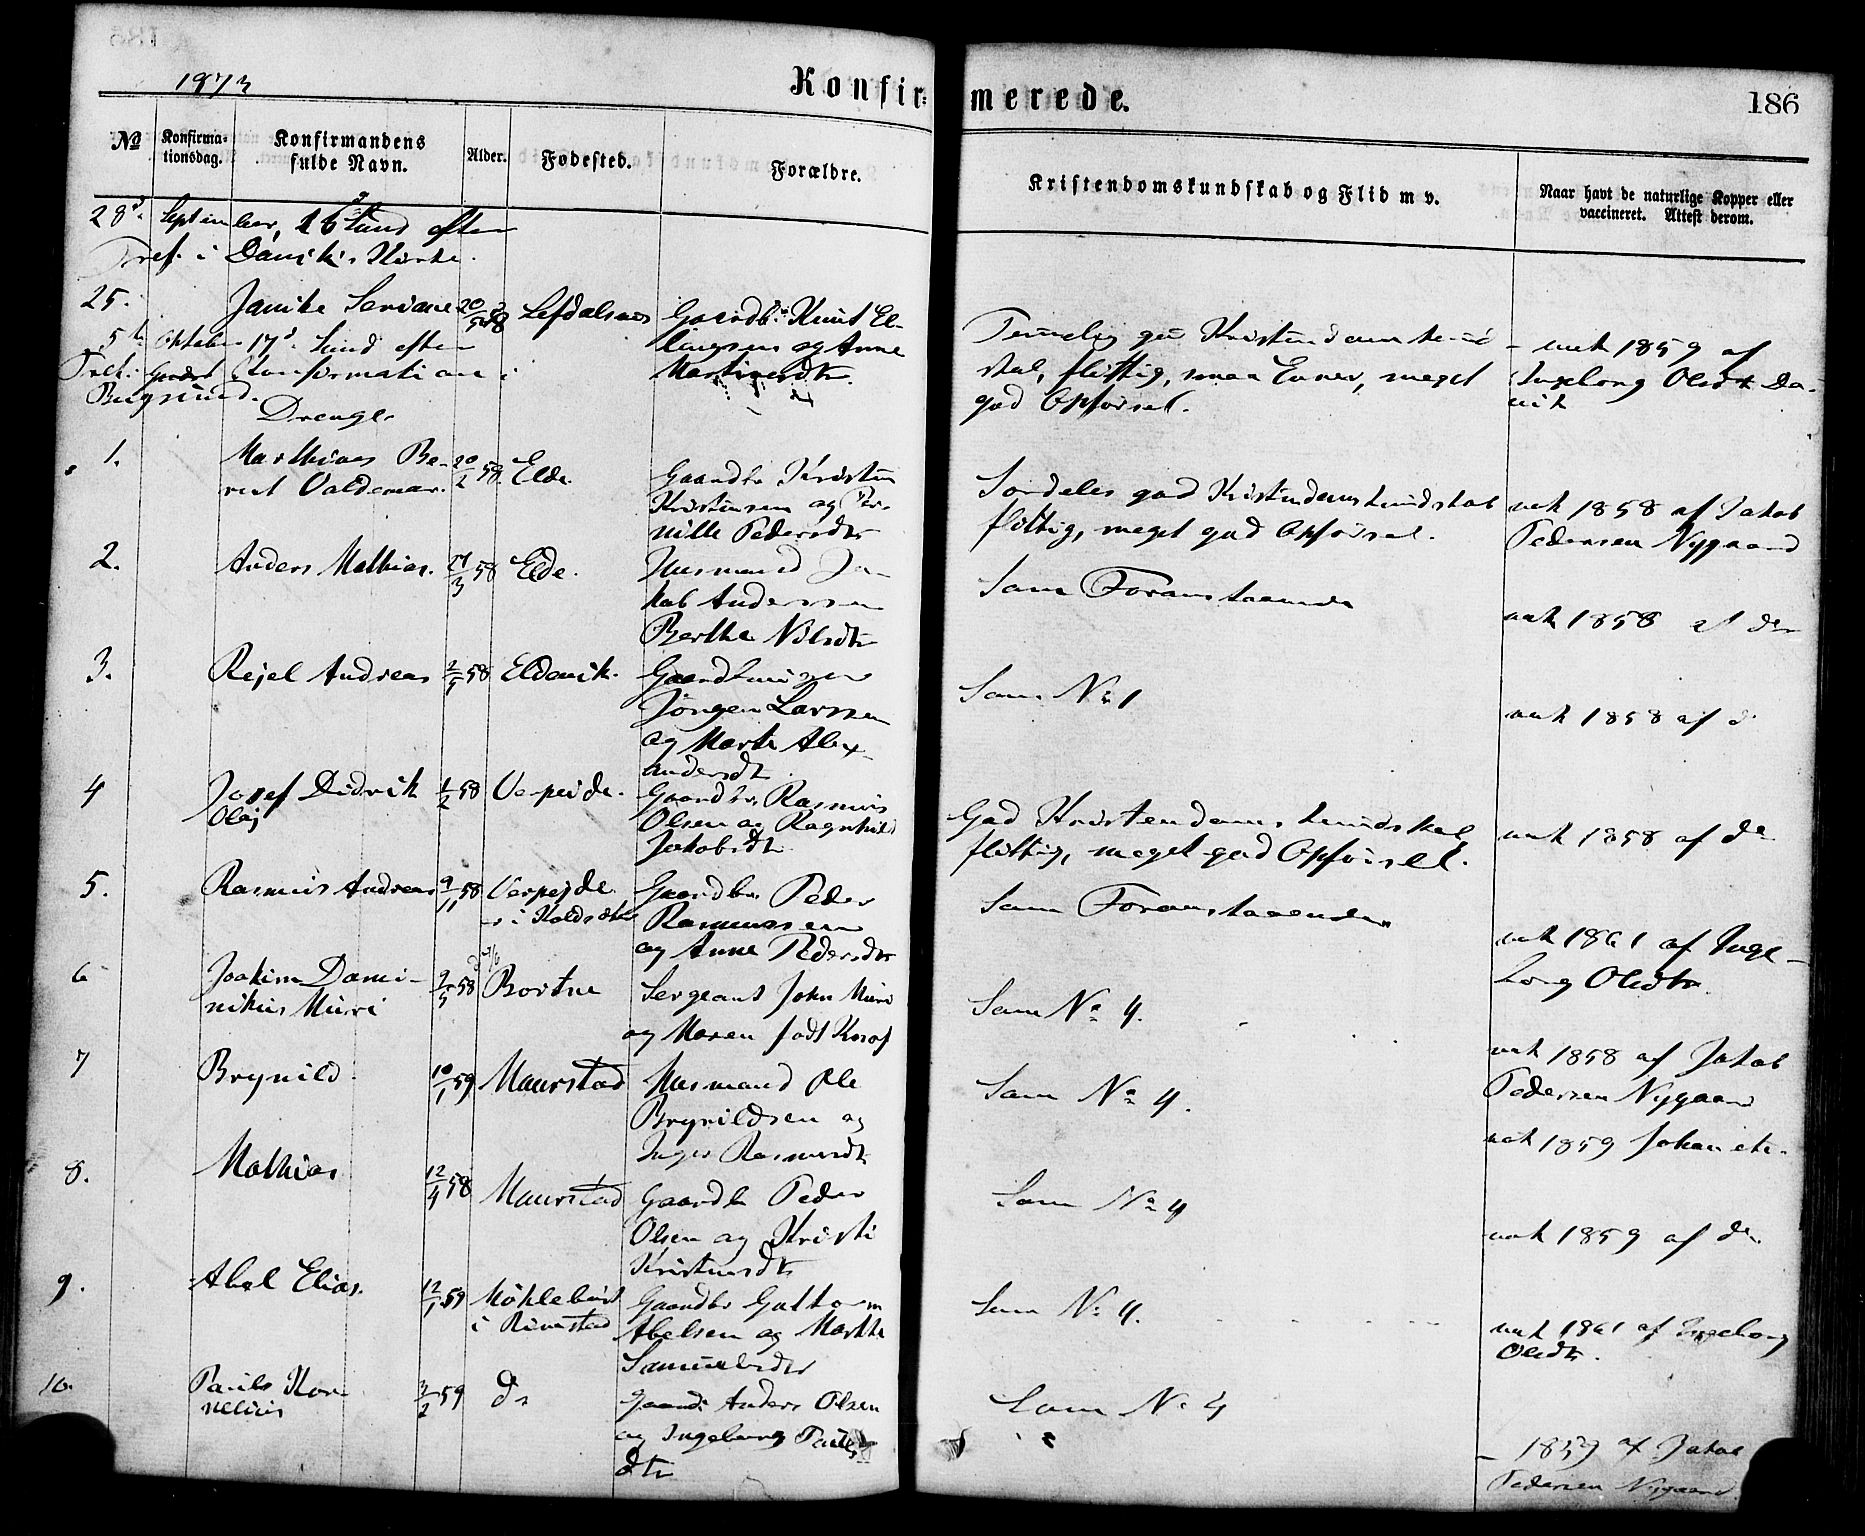 1873
Konfir=
merede.
186
No
Konfirma=
tionsdag.
Konfirmandens
fulde Navn.
Alder.
Fødested.
Forældre.
Kristendomskundskab og Flid m v.
Naar havt de naturlige Kopper eller
vaccineret. Attest derom.
28de September, 16de Sønd efter
Tref. i Daviks Kirke.
25.
Janike Seriane
Lefdalsnes
Gaardbr. Knut El-
lingsen og Anne
Martinesdtr.
Temmelig god Kristendomskund
skab, flittig, smaa Evner, meget
god Opførsel.
vak 1859 af
Ingeborg Olsdtr Da-
vik
5te Oktober 17de Sønd efter
Tref. Konfirmation i
Bugsund.
Drenge
1.
Marthines Be-
rent Valdemar.
20/2 58
Elde.
Gaardbr Kristen
Kristensen og Per-
nille Pedersdtr
Særdeles god Kristendomskundskab
flittig, meget god Opførsel.
vak 1858 af Jakob
Pedersen Nygaard
2.
Anders Mathias.
Elde.
Husmand Ja-
kob Anderssen
Bertha Nilsdtr
Som Foranstaaende
vak 1858 af do
3.
Rejel Andreas
58
Eldevik.
Jørgen Larssen
og Marte Alex-
andersdtr.
Som No 1
vak 1858 af d
4
Josef Didrik
Olaj
1/2 58
Verpeide.
Gaardbr. Rasmus
Olsen og Ragnhild
Jakobsdtr.
God Kristendomskundskab
flittig, meget god Opførsel.
vak 1858 af do
5.
Rasmus Andreas
9/11 58
Verpejde
Gaardbr Peder
Rasmussen
og Anne Pedersdtr
Som Foranstaaende
vak 1861 af Inge-
borg Olsdtr.
6
Joakim Domi-
nikus Muri
58
Bortne
Sergeant John Muri
og Maren født Knof
Som No 4.
vak 1858 af Jakob
Pedersen Nygaard
7
Brynild.
10/1 59
Maurstad
Husmand Ole
Brynildsen og
Inger Rasmusdtr
Som No 4.
vak 1859
8.
Mathias
12/4 58
Maurstad
Gaardbr Peder
Olsen og Kristi
Kristensdtr
Som No 4
vak 1859 af do
9.
Abel Elias.
12/1 59
Gaardbr Guttorm
Abelsen og Marthe
Samuelsdtr
Som No 4.
vak 1861 af Ingeborg
Olsdtr.
10.
Pauls Kor-
nelius
3/2 59
do
Gaardb Anders Olsen
og Ingeborg Pauls
dtr
Som No 4
1859 af Jakob
Pedersen Nygaard